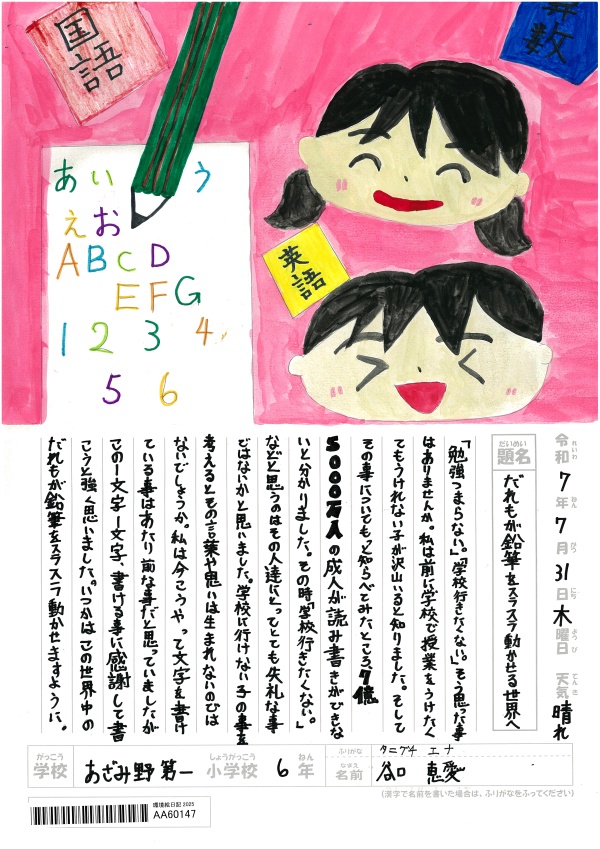 国語
算数
あいう
えお
ABCD
EFG
1 2 3 4
5 6
英語
令和7年7月31日木曜日 天気 晴れ
れいわ ねん がつ にち ようび てんき
だいめい
題名
だれもが鉛筆をスラスラ動かせる世界へ
「勉強つまらない。」「学校行きたくない。」そう思った事
はありませんか。私は前に学校で授業をうけたく
てもうけれない子が沢山いると知りました。そして
その事についてもっと知らべてみたところ7億
5000万人の成人が読み書きができな
いと分かりました。その時「学校行きたくない。」
などと思うのはその人達にとってとても失礼な事
ではないかと思いました。学校に行けない子の事を
考えるとその言葉や思いは生まれないのでは
ないでしょうか。私は今こうやって文字を書け
ている事はあたり前な事だと思っていましたが
この一文字一文字、書ける事に感謝して書
こうと強く思いました。いつかはこの世界中の
だれもが鉛筆をスラスラ動かせますように。
がっこう しょうがっこう ねん
学校 あざみ野第一 小学校 6年
ふりがな タニグチ エナ
なまえ
名前 谷口 恵愛
(漢字で名前を書いた場合は、ふりがなをふってください)
環境絵日記 2025
AA60147